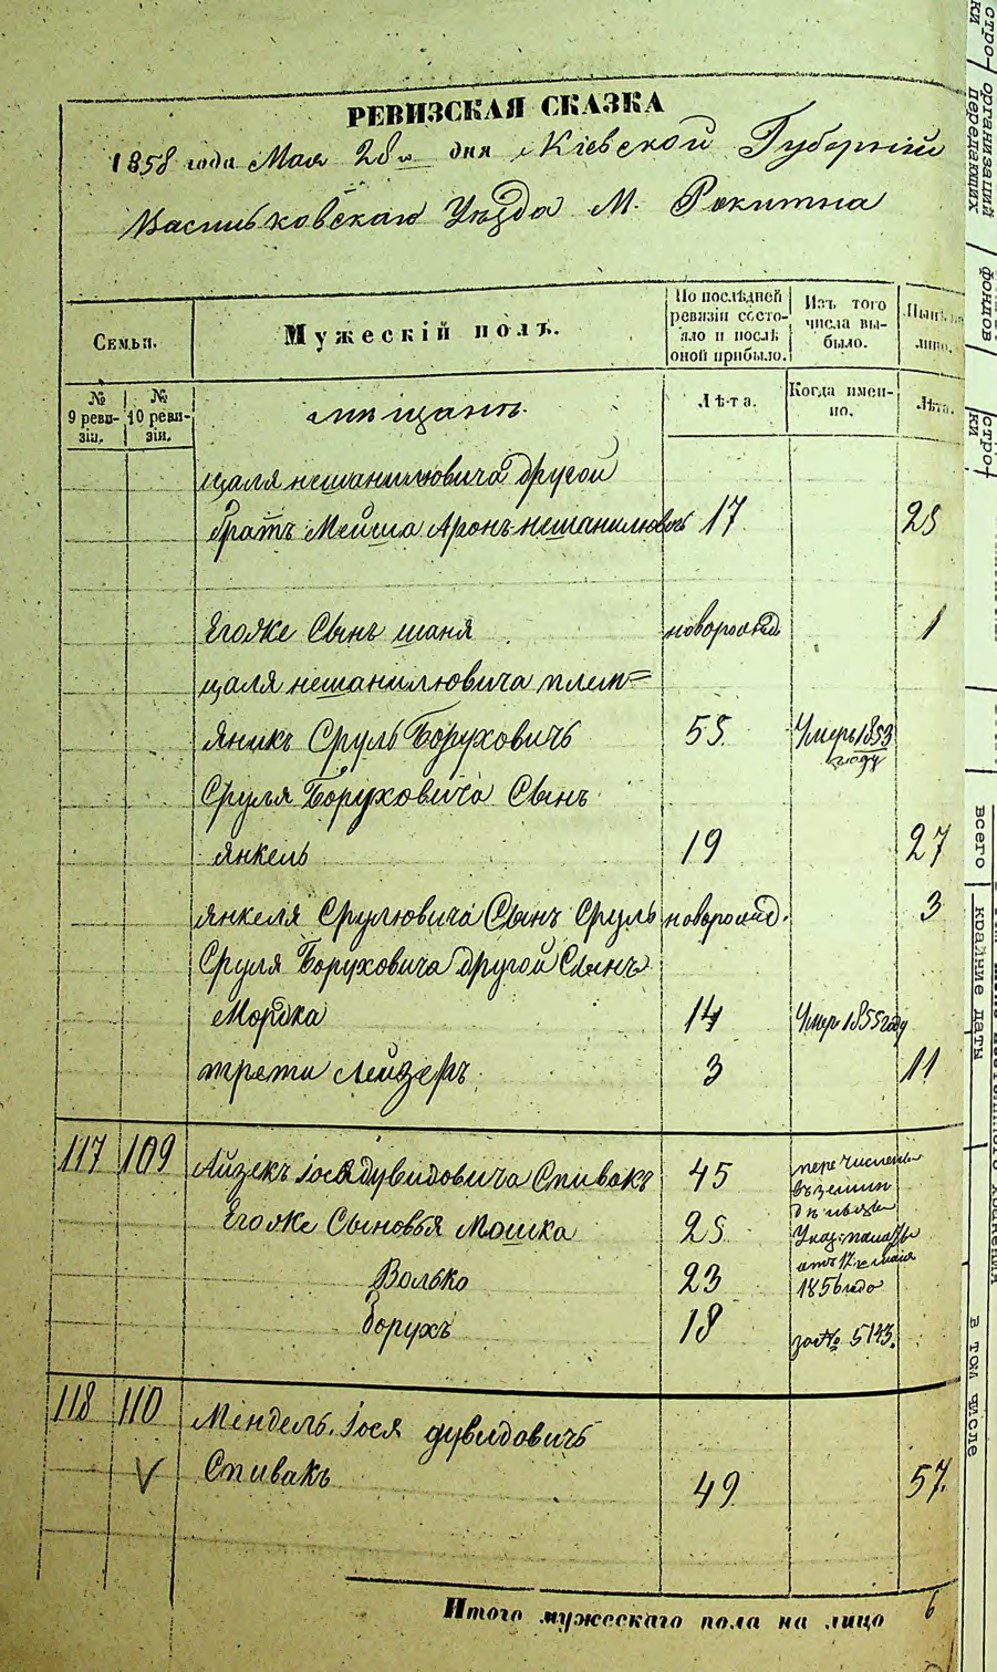 РЕВИЗСКАЯ СКАЗКА
1858 года Мая 28го дня Кіевской Губерніи
Васильковскаго Уѣзда М. Рокитна
Семьи.
Мужескій полъ.
По послѣдней ревизіи состояло и послѣ оной прибыло.
Изъ того числа выбыло.
№ 9 ревизіи.
№ 10 ревизіи.
мѣщане.
Лѣта.
Когда именно.
Лѣта.
цаля нешанилювича другой
братъ Мейша Аронъ нешанилювичъ 17 25
Егоже Сынъ шаня новорожд 1
цаля нешанилювича плем=
яникъ Сруль Боруховичъ 55. Умеръ 1853 году
Сруля Боруховича Сынъ
янкель 19 27
янкеля Срулювича Сынъ Сруль новорожд. 3
Сруля Боруховича другой Сынъ
Мордка 14 Умер 1855 году
трети Лейзеръ 3 11
117 109 Айзекъ Іося дувидовича Спивакъ 45 перечисленъ
Егоже Сыновья Мошка 25
Волько 23 1856 года
Борухъ 18 за № 5143.
118 110 Мендель Іося дувидовичъ
V Спивакъ 49 57.
Итого мужескаго пола на лицо 6
строки
организаций передающих
фондов
строки
всего
крайние даты
в том числе